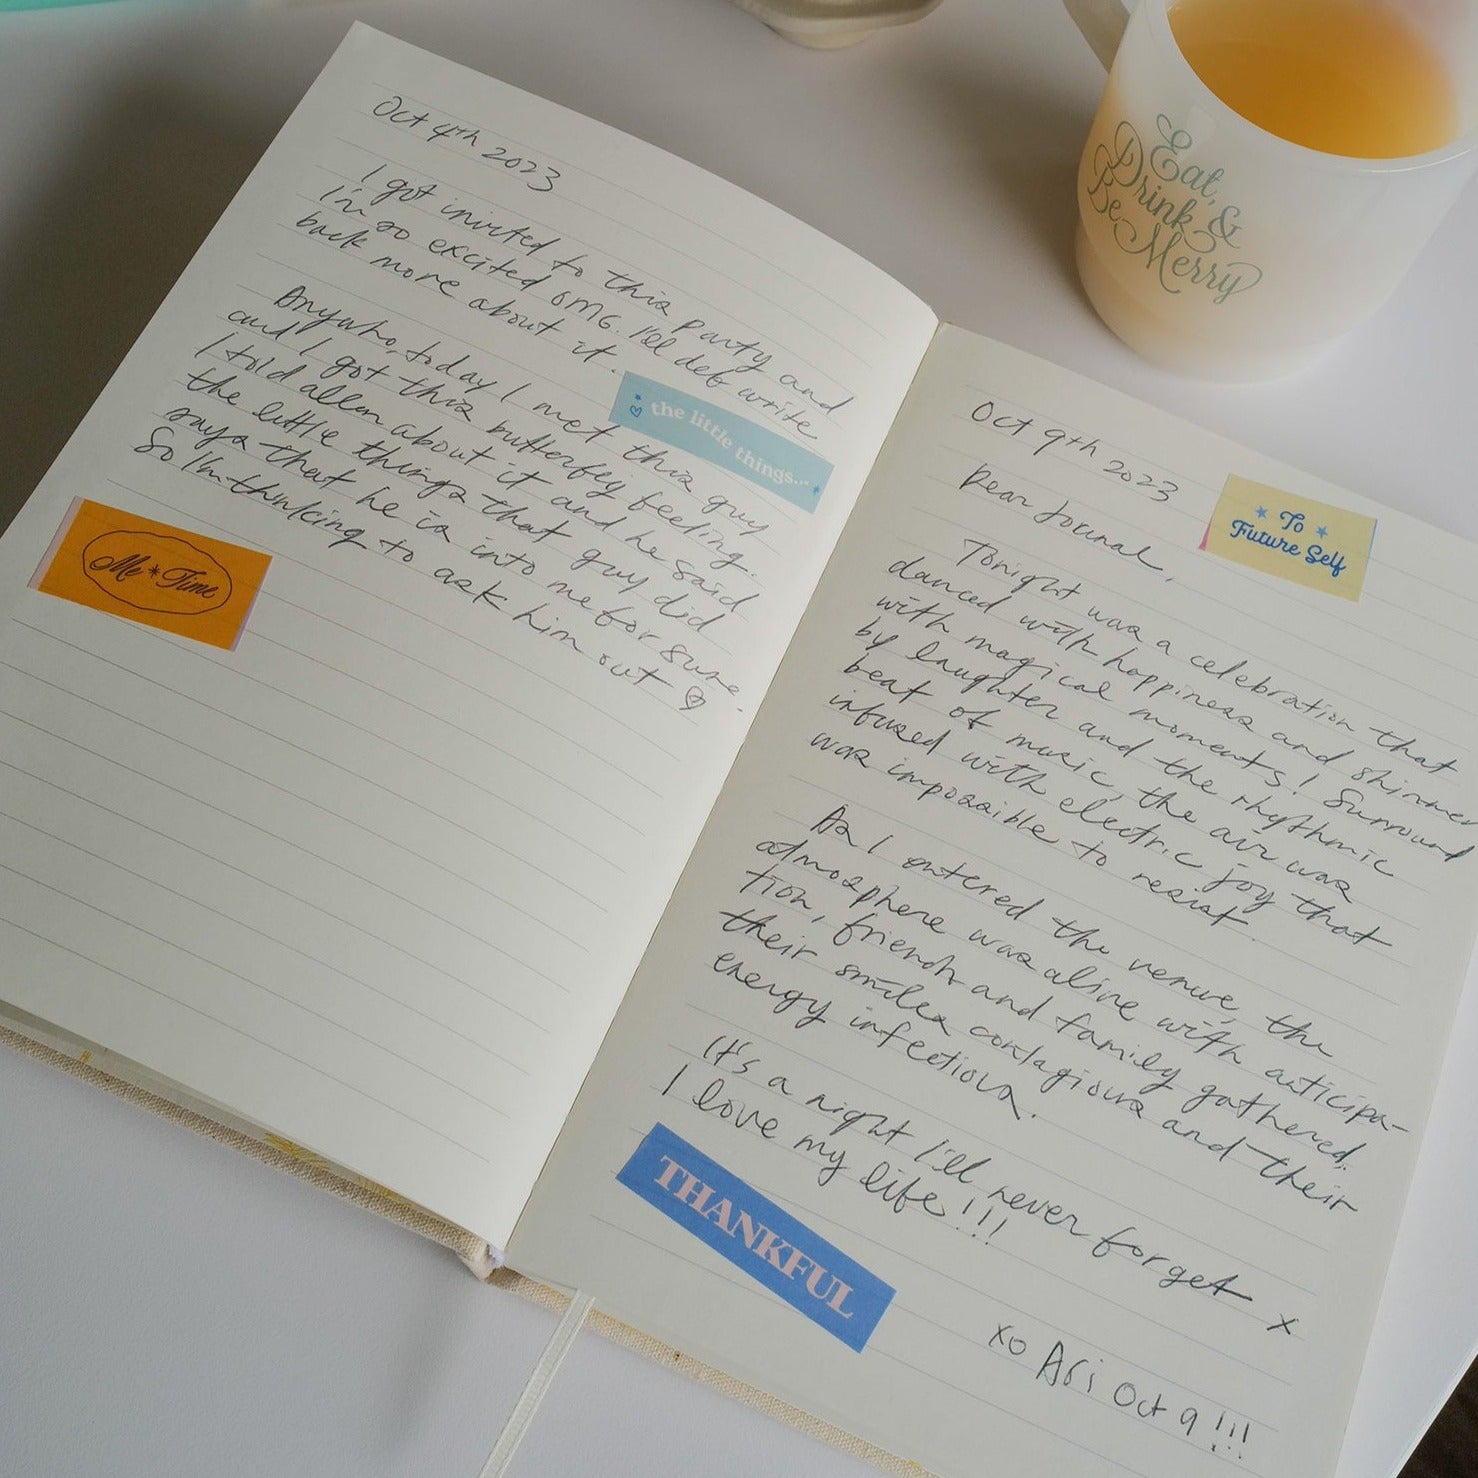 Oct 4th 2023
I got invited to this party and
I'm so excited OMG. I'll def write
back more about it.
Anywho, today I met this guy
and I got this butterfly feeling.
I told allen about it and he said
the little things that guy did
says that he is into me for sure.
So I'm thinking to ask him out
the little things...
Me * Time
Oct 9th 2023
To
Future Self
Dear Journal,
Tonight was a celebration that
danced with happiness and shimmer
with magical moments! Surround
by laughter and the rhythmic
beat of music, the air was
infused with electric joy that
was impossible to resist.
As I entered the venue, the
atmosphere was alive with anticipa-
tion, friends and family gathered,
their smiles contagious and their
energy infectious.
It's a night I'll never forget x
I love my life!!!
THANKFUL
xo Ari Oct 9!!!
Eat,
Drink, &
Be Merry